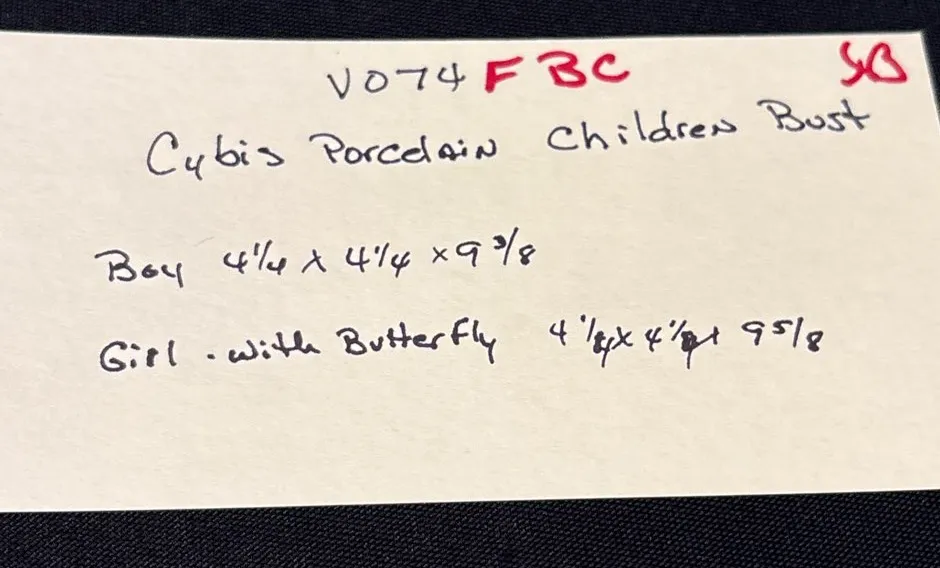 V074 FBC SB
Cybis Porcelain Children Bust
Boy 4 1/4 x 4 1/4 x 9 3/8
Girl . with Butterfly 4 x 4 x 9 5/8